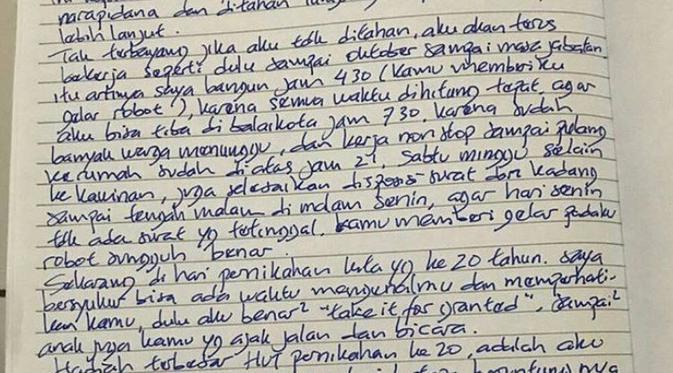 narapidana dan ditahan
lebih lanjut.
Tak terbayang jika aku tdk ditahan, aku akan terus
bekerja seperti dulu sampai oktober sampai masa jabatan
itu artinya saya bangun jam 430 (kamu memberiku
gelar robot), karena semua waktu dihitung tepat agar
aku bisa tiba di balaikota jam 730. karena sudah
banyak warga menunggu, dan kerja non stop sampai pulang
ke rumah sudah diatas jam 21. Sabtu minggu selain
ke kawinan, juga selesaikan dispos-surat dan kadang
sampai tengah malam di malam senin, agar hari senin
tdk ada surat yg tertinggal. kamu memberi gelar padaku
robot sungguh benar.
Sekarang di hari pernikahan kita yg ke 20 tahun. saya
bersyukur bisa ada waktu mengenalmu dan memperhati-
kan kamu, dulu aku benar² "take it for granted", sampai²
anak juga kamu yg ajak jalan dan bicara.
Hadiah terbesar HUT pernikahan ke 20, adalah aku